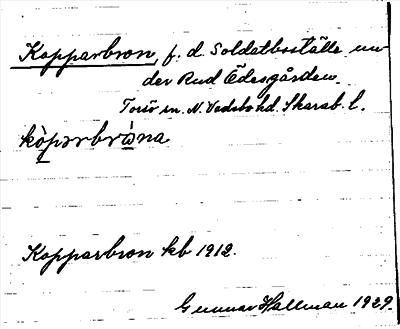 Kopparbron, f. d. Soldatboställe un-
der Rud Ödesgården.
Torsö sn. N. Vadsbo hd. Skarab. l.
kòpərbrɷ̀na
Kopparbron kb 1912.
Gunnar Hallman 1929.